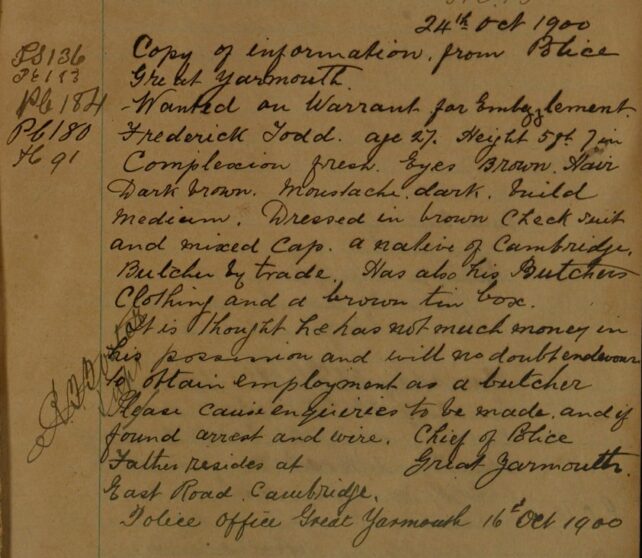 24th Oct 1900
PS 136
PC 113
Pb 184
Pb 180
Copy of information from Police
Great Yarmouth.
Wanted on Warrant for Embezzlement.
Frederick Todd. age 27. Height 5ft 7in
Complexion fresh. Eyes Brown. Hair
Dark brown. Moustache dark. build
Medium. Dressed in brown Check suit
and mixed Cap. a native of Cambridge.
Butcher by trade. Has also his Butchers
Clothing and a brown tin box.
It is thought he has not much money in
his possession and will no doubt endevour
to obtain employment as a butcher
Please cause enquiries to be made, and if
found arrest and wire. Chief of Police
Father resides at Great Yarmouth.
East Road Cambridge.
Police Office Great Yarmouth 16th Oct 1900